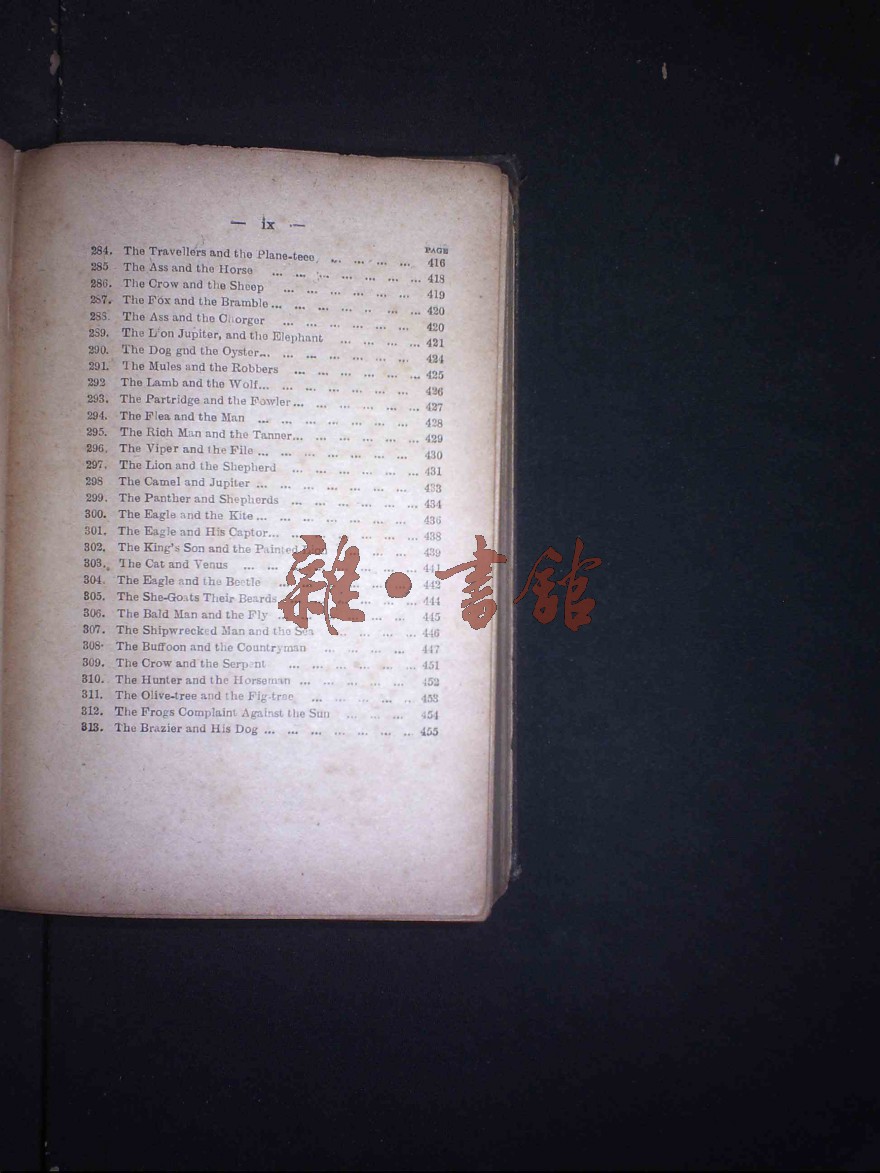 — ix —
PAGE
284. The Travellers and the Plane-teee ... ... ... ... 416
285 The Ass and the Horse ... ... ... ... ... ... 418
286. The Crow and the Sheep ... ... ... ... ... ... 419
287. The Fox and the Bramble ... ... ... ... ... ... 420
288. The Ass and the Charger ... ... ... ... ... ... 420
289. The Lion Jupiter, and the Elephant ... ... ... ... 421
290. The Dog gnd the Oyster... ... ... ... ... ... ... 424
291. The Mules and the Robbers ... ... ... ... ... ... 425
292 The Lamb and the Wolf... ... ... ... ... ... ... 426
293. The Partridge and the Fowler ... ... ... ... ... ... 427
294. The Flea and the Man ... ... ... ... ... ... ... 428
295. The Rich Man and the Tanner... ... ... ... ... ... 429
296. The Viper and the File ... ... ... ... ... ... ... 430
297. The Lion and the Shepherd ... ... ... ... ... ... 431
298 The Camel and Jupiter ... ... ... ... ... ... ... 433
299. The Panther and Shepherds ... ... ... ... ... ... 434
300. The Eagle and the Kite ... ... ... ... ... ... ... 436
301. The Eagle and His Captor... ... ... ... ... ... ... 438
302. The King's Son and the Painted Lion ... ... ... 439
303. The Cat and Venus ... ... ... ... ... ... ... 441
304. The Eagle and the Beetle ... ... ... ... ... ... 442
305. The She-Goats Their Beards ... ... ... ... ... ... 444
306. The Bald Man and the Fly ... ... ... ... ... ... 445
307. The Shipwrecked Man and the Sea ... ... ... ... 446
308. The Buffoon and the Countryman ... ... ... ... 447
309. The Crow and the Serpent ... ... ... ... ... ... 451
310. The Hunter and the Horseman ... ... ... ... ... 452
311. The Olive-tree and the Fig-tree ... ... ... ... ... 453
312. The Frogs Complaint Against the Sun ... ... ... 454
313. The Brazier and His Dog ... ... ... ... ... ... ... 455
雜·書館